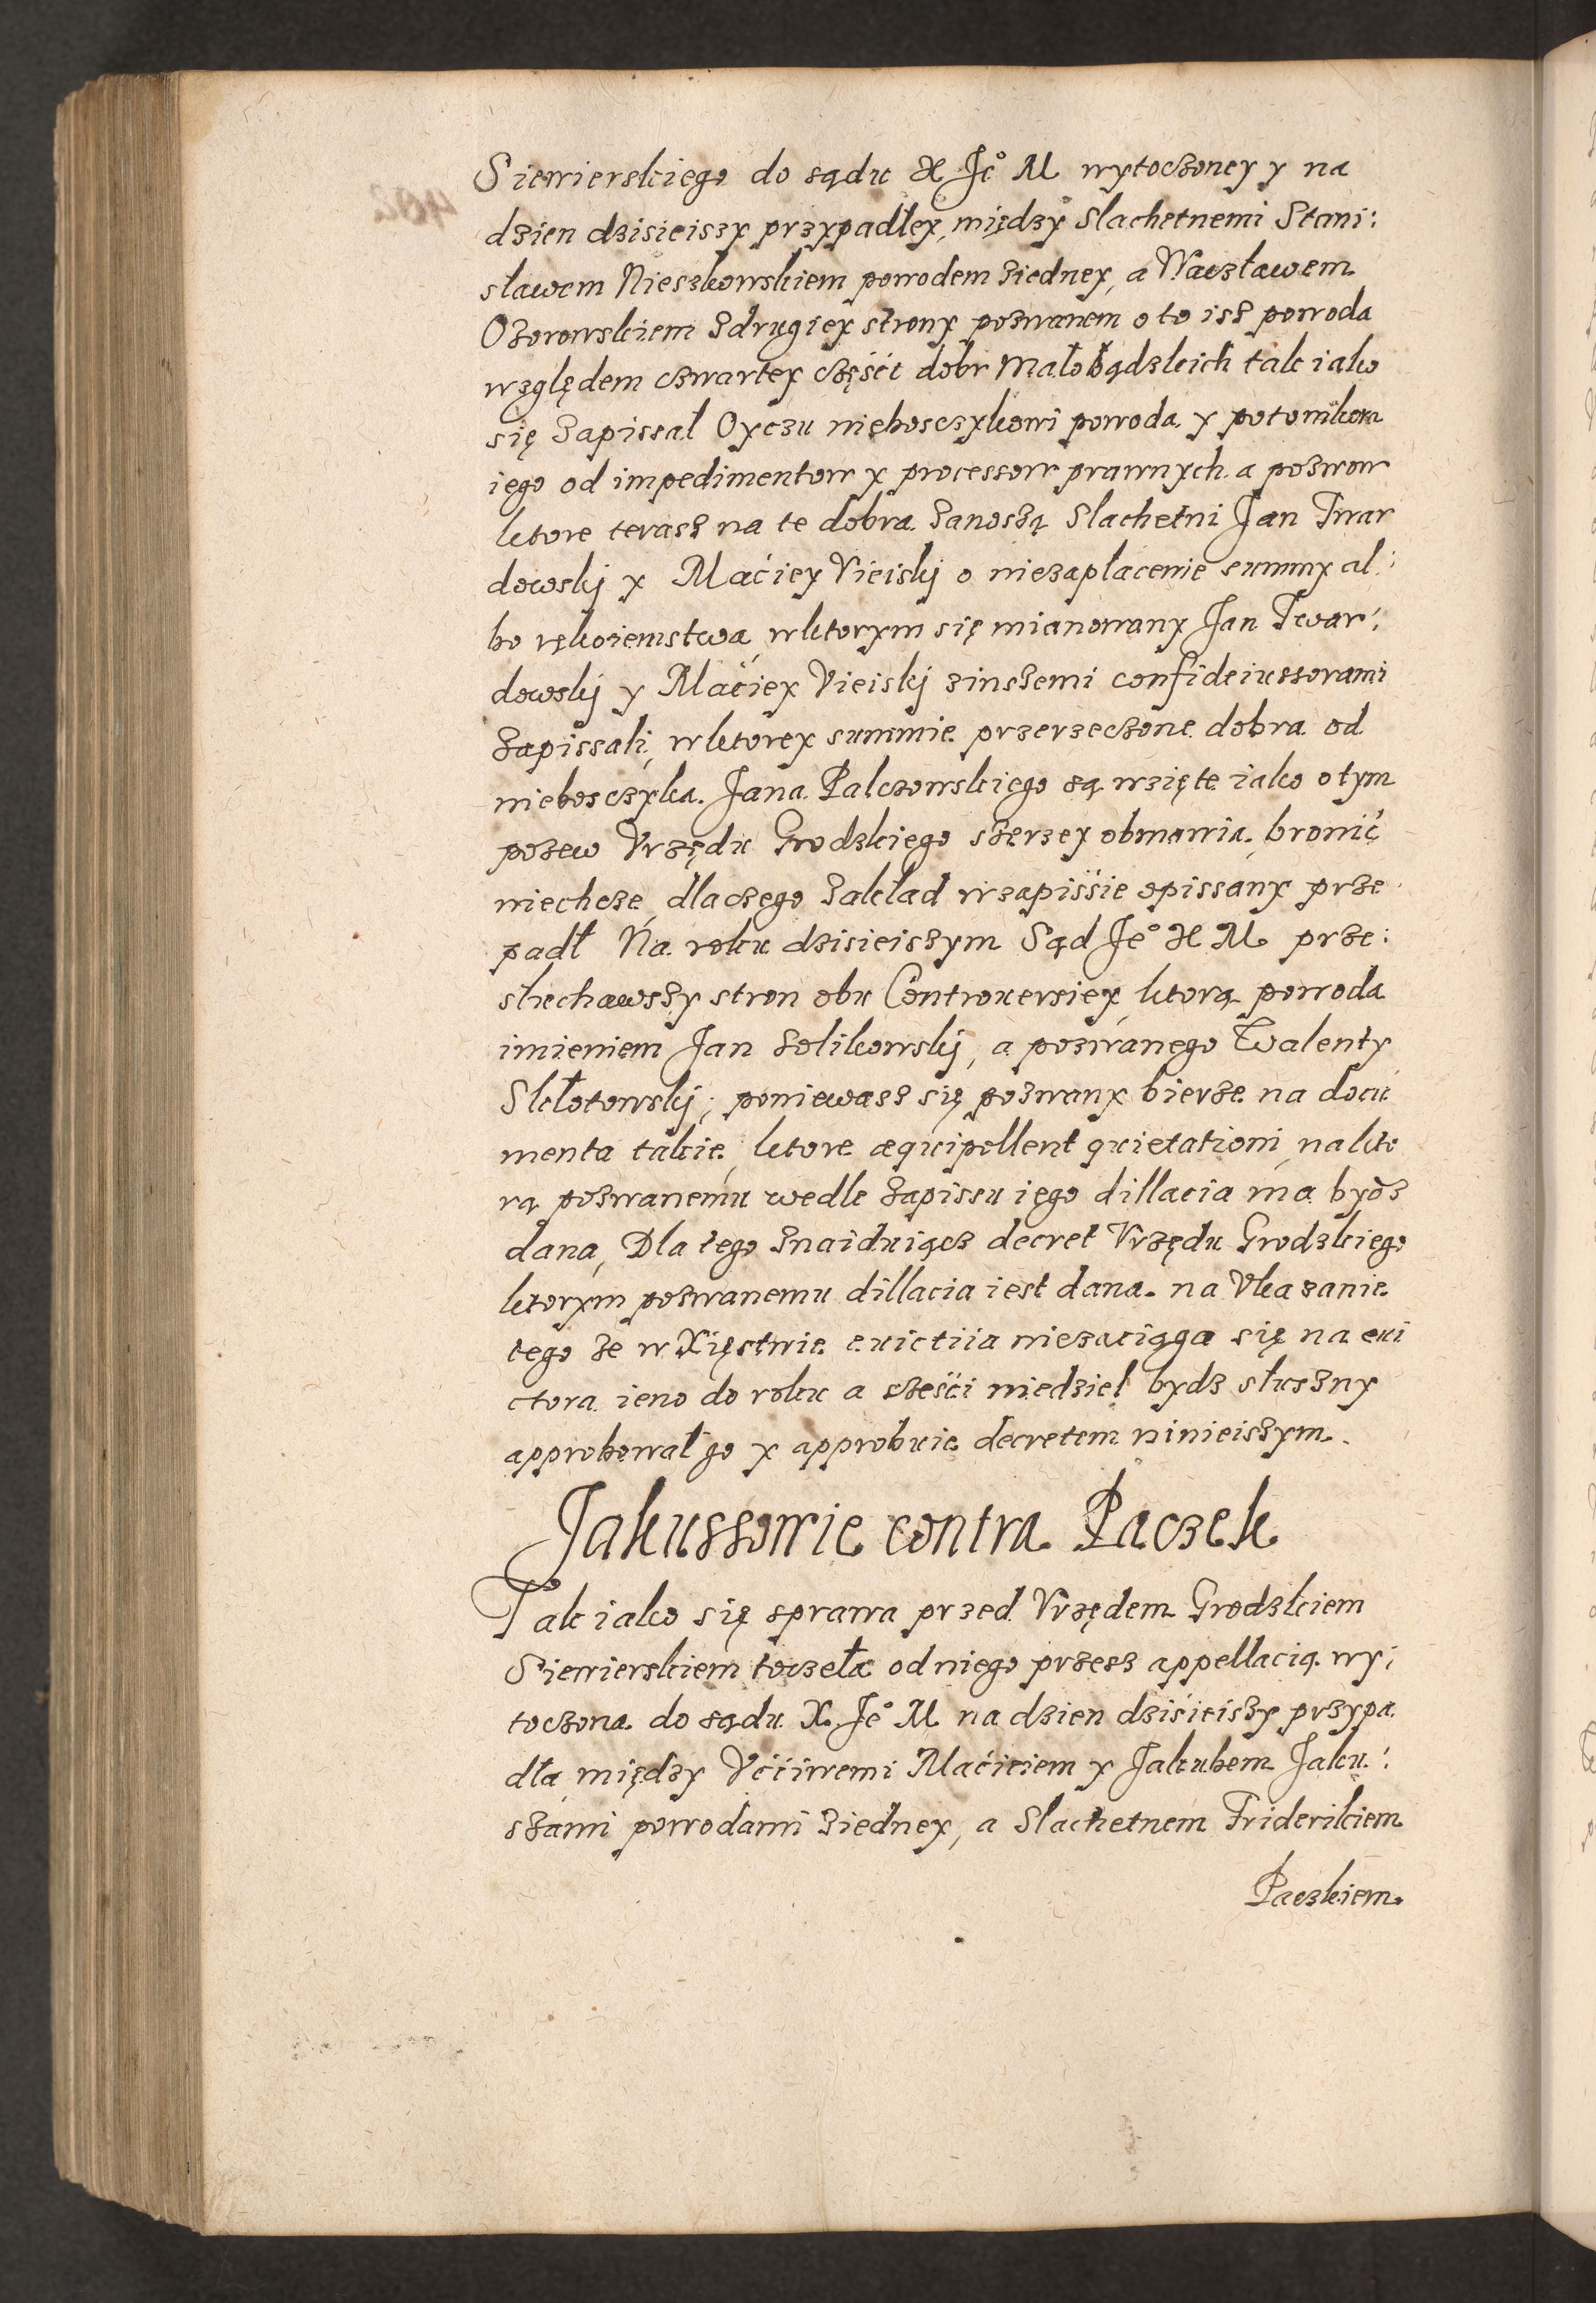 Siewierskiego do sądu X Je° M wytoczoney y na
dzien dzisieiszy przypadłey, między Slachetnemi Stani:
sławem Nieszkowskiem powodem ziedney, a Waczławem
Ozorowskiem zdrugiey strony pozwanem o to isz powoda
względem czwartey częśći dobr Małobądzkich tak iako
się zapissał Oyczu nieboszczykowi powoda y potomkom
iego od impedimentow y processow prawnych a pozwow
ktore terasz na te dobra zanoszą Slachetni Jan Twar
dowskj y Maćiey Vieiskj o niezapłacenie summy al:
bo rękoiemstwa, wktorym się mianowany Jan Twar:
dowskj y Maćiey Vieiskj zinszemi confideiussorami
zapissali, wktorey summie przerzeczone dobra od
nieboszczyka Jana Palczowskiego są wzięte iako o tym
pozew Vrzędu Grodzkiego szerzey obmawia, bronić
niechcze, dlaczego zakład wzapisśie opissany prze
padł Na roku dzisieiszym Sąd Je° X M prze:
słuchawszy stron obu Controuersiey, ktorą powoda
imieniem Jan Solikowskj, a pozwanego Walenty
Skłotowskj; poniewasz się pozwany bierze na docu
menta takie, ktore æquipollent quietationi, nakto
rą pozwanemu wedle zapissu iego dillacia ma bydz
dana, Dla tego znaiduiącz decret Vrzędu Grodzkiego
ktorym pozwanemu dillacia iest dana na Vkazanie
tego że w Xięstwie euictiia niezaciąga się na eui
ctora ieno do roku a sześći niedziel bydz słuszny
approbował go y approbuie decretem ninieiszym.
Jakussowie contra Paczek
Tak iako się sprawa przed Vrzędem Grodzkiem
Siewierskiem toczeła od niego przesz appellacią wy:
toczona do sądu X Je° M na dzien dziśieiszy przypa
dła, między Vććiwemi Maćieiem y Jakubem Jaku:
szami powodami ziedney, a Slachetnem Friderikiem
Paczkiem.